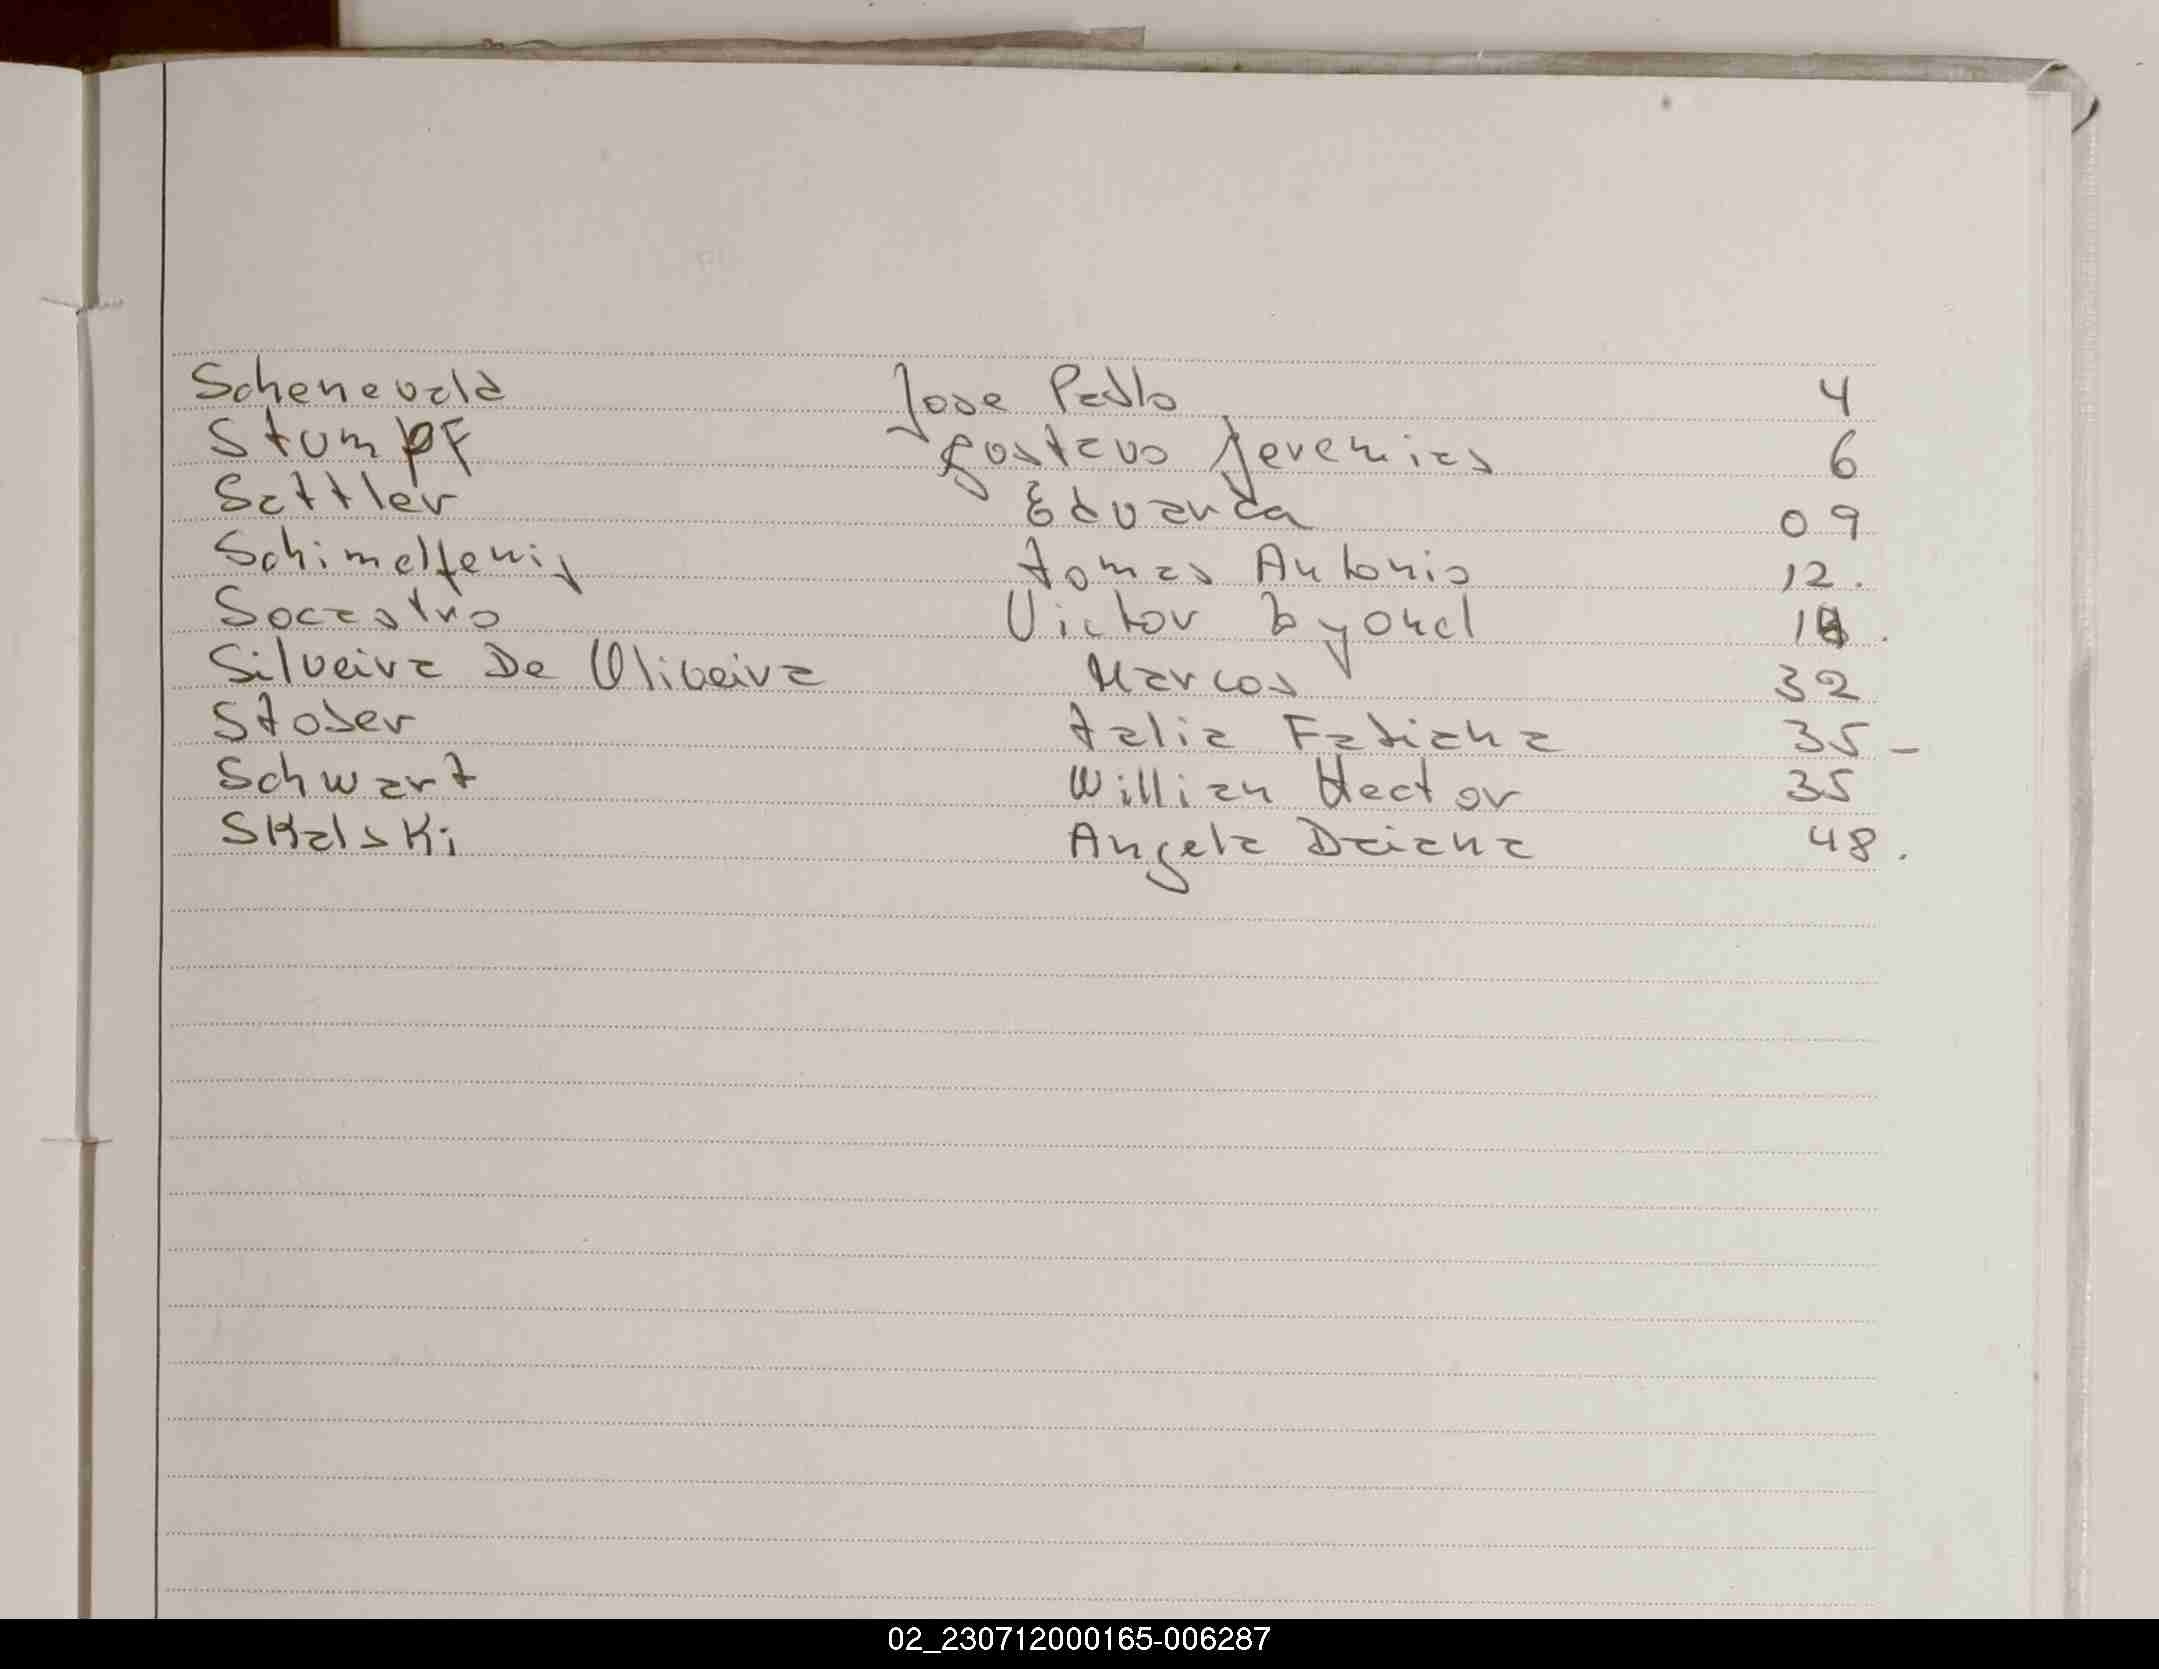 Schenevald Jose Pablo 4
Stumpf Gustavo Jeremias 6
Sattler Eduarda 09
Schimelfenig Tomas Antonio 12.
Socastro Victor 
Silveira De Oliveira Marcos 32
Stober Talia Fabiana 35 -
Schwart Willian Hector 35
Skalski Angela Daiana 48.
02_230712000165-006287